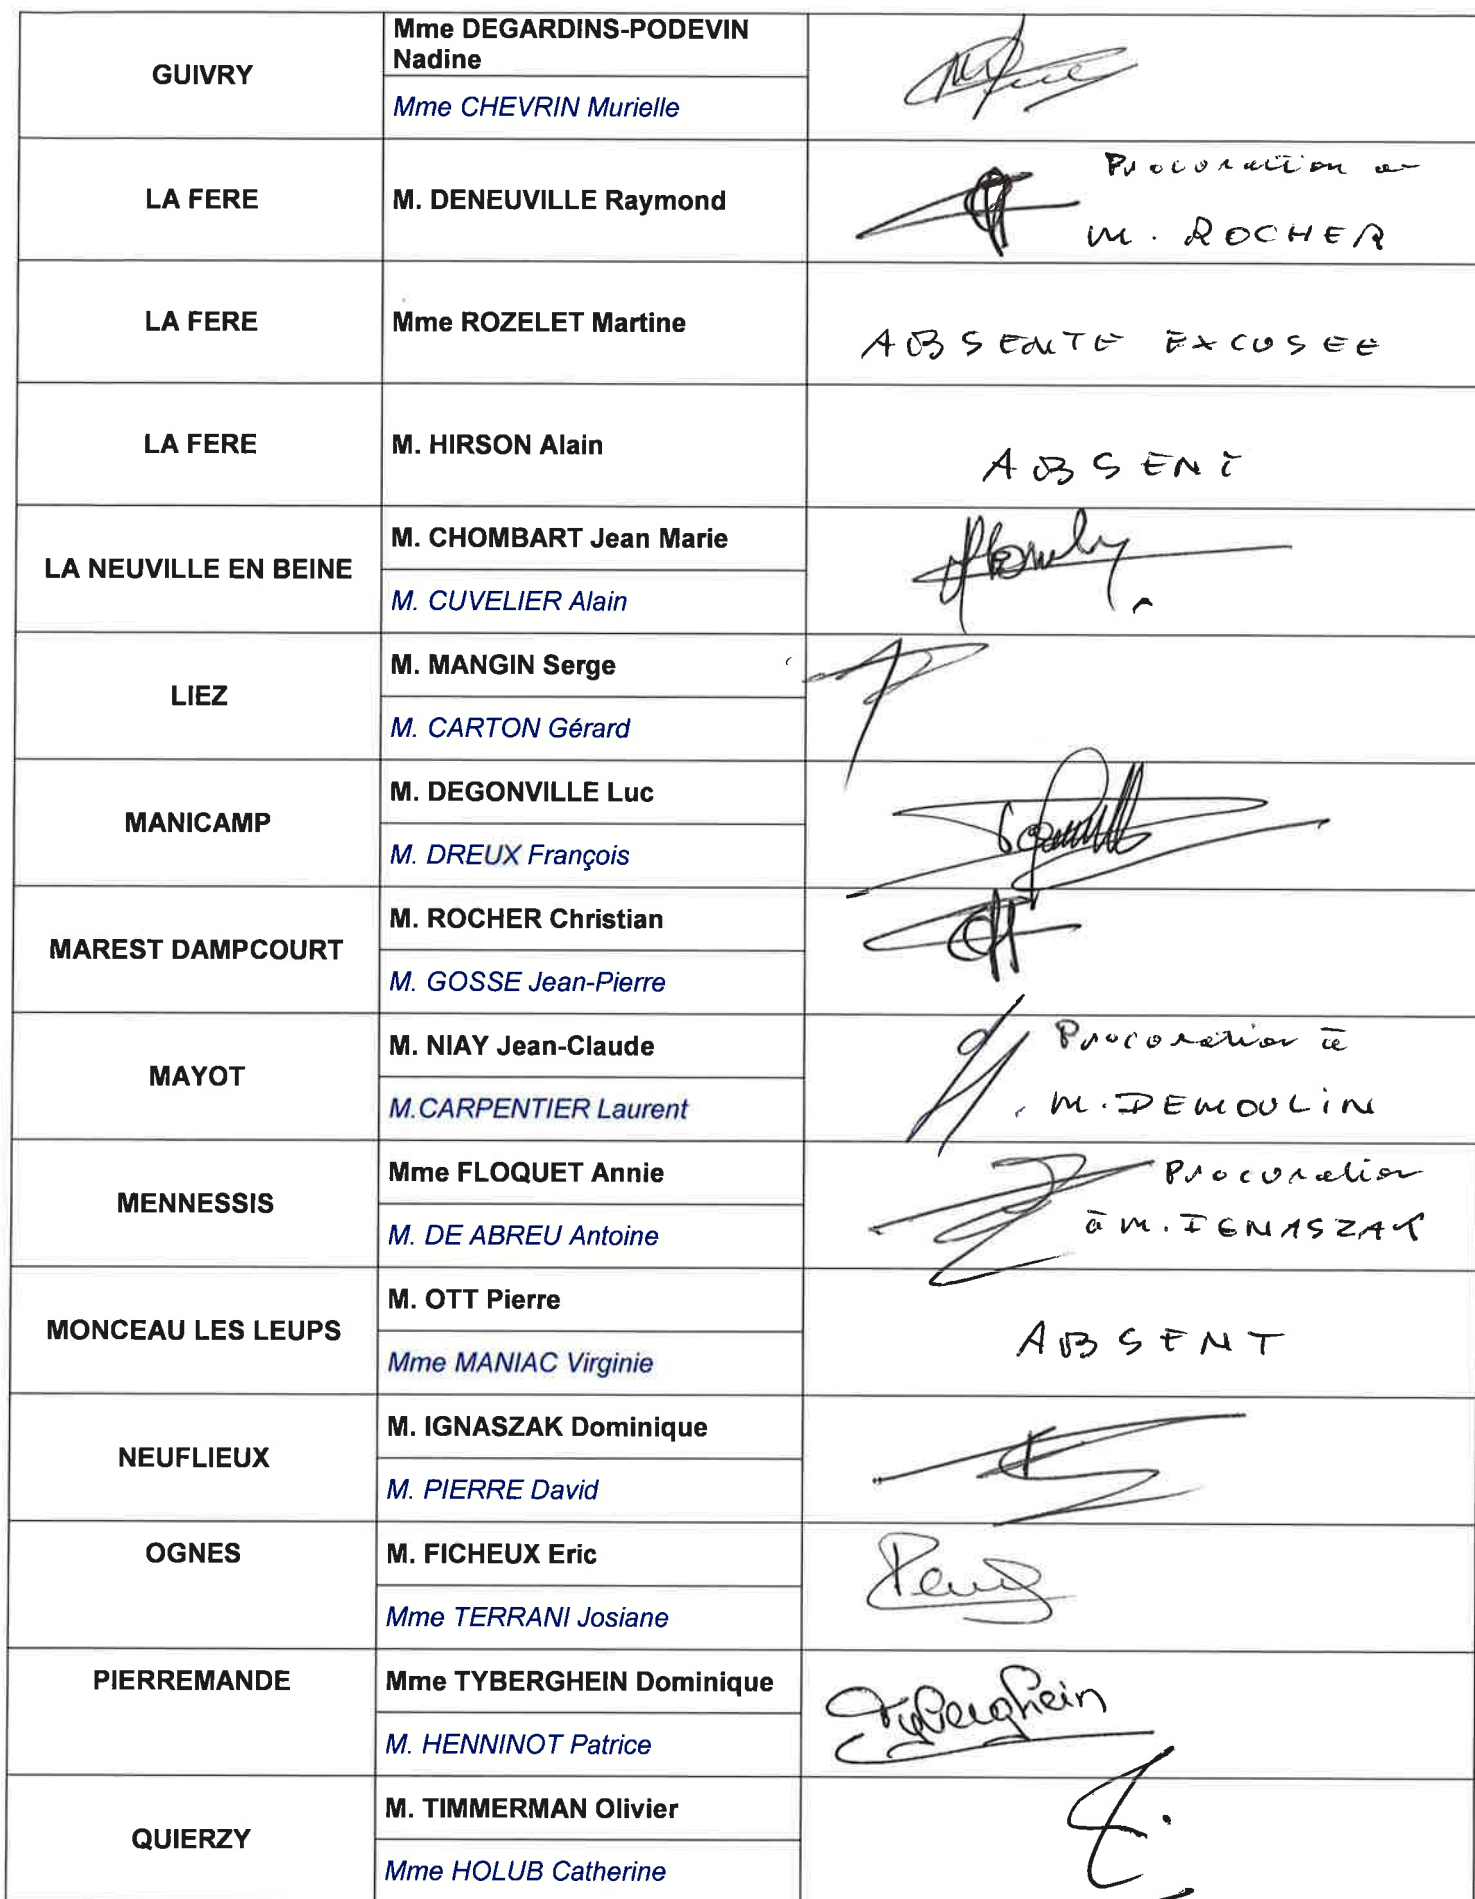 GUIVRY
Mme DEGARDINS-PODEVIN
Nadine
Mme CHEVRIN Murielle
LA FERE
M. DENEUVILLE Raymond
Procuration a
M. ROCHER
LA FERE
Mme ROZELET Martine
ABSENTE EXCUSEE
LA FERE
M. HIRSON Alain
ABSENT
LA NEUVILLE EN BEINE
M. CHOMBART Jean Marie
M. CUVELIER Alain
LIEZ
M. MANGIN Serge
M. CARTON Gérard
MANICAMP
M. DEGONVILLE Luc
M. DREUX François
MAREST DAMPCOURT
M. ROCHER Christian
M. GOSSE Jean-Pierre
MAYOT
M. NIAY Jean-Claude
M.CARPENTIER Laurent
Procuration à
M. DEMOULIN
MENNESSIS
Mme FLOQUET Annie
M. DE ABREU Antoine
Procuration
à M. IGNASZAK
MONCEAU LES LEUPS
M. OTT Pierre
Mme MANIAC Virginie
ABSENT
NEUFLIEUX
M. IGNASZAK Dominique
M. PIERRE David
OGNES
M. FICHEUX Eric
Mme TERRANI Josiane
PIERREMANDE
Mme TYBERGHEIN Dominique
M. HENNINOT Patrice
Tyberghein
QUIERZY
M. TIMMERMAN Olivier
Mme HOLUB Catherine